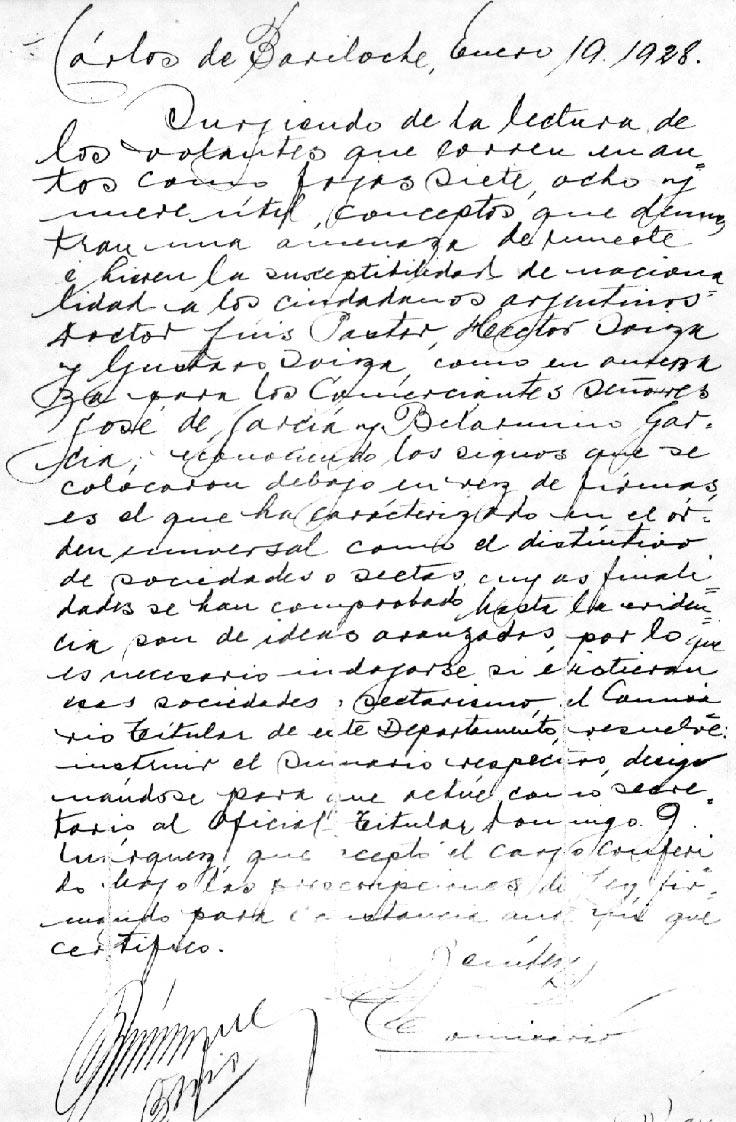 Cárlos de Bariloche, Enero 19. 1928.
Surjiendo de la lectura de
los volantes que corren en au=
tos como fojas siete, ocho y
nueve útil, conceptos que demues
tran una amenaza de muerte
é hieren la susceptibilidad de naciona
lidad a los ciudadanos argentinos=
Doctor Luis Pastor, Hector
y Gustavo como en amena
za para los Comerciantes Señores
José de García y Belarmino Gar-
cia, reconociendo los signos que se
colocaron debajo en vez de firmas,
es el que ha carácterizado en el ór-
den universal como el distintivo
de sociedades o sectas, cuyas finali
dades se han comprobado hasta la eviden=
cia son de ideas avanzadas, por lo que
es necesario indagarse si existieran
esas sociedades sectarismo, el Comisa
rio Titular de este Departamento, resuelve:
instruir el sumario respectivo, desig
nándose para que actúe como secre=
tario al Oficial Titular Domingo
que aceptó el cargo conferi
do bajo las de Ley fir-
mando para constancia ante mí que
certifico.
Comisario